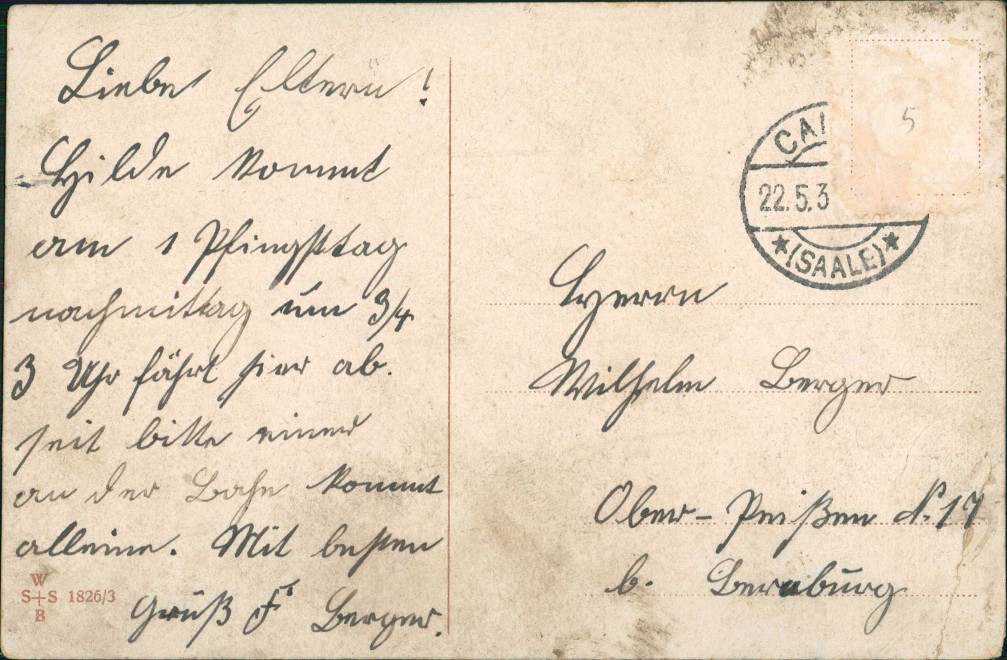 Liebe Eltern!
Hilde kommt
am 1 Pfingsttag
nachmittag um 3/4
3 Uhr fährt hier ab.
seit bitte einer
an der Bahn kommt
alleine. Mit besten
Gruß F. Berger.
W
S+S 1826/3
B
5
CAL
22.5.3
★(SAALE)★
Herrn
Wilhelm Berger
Ober-Peißen N. 17
b. Bernburg